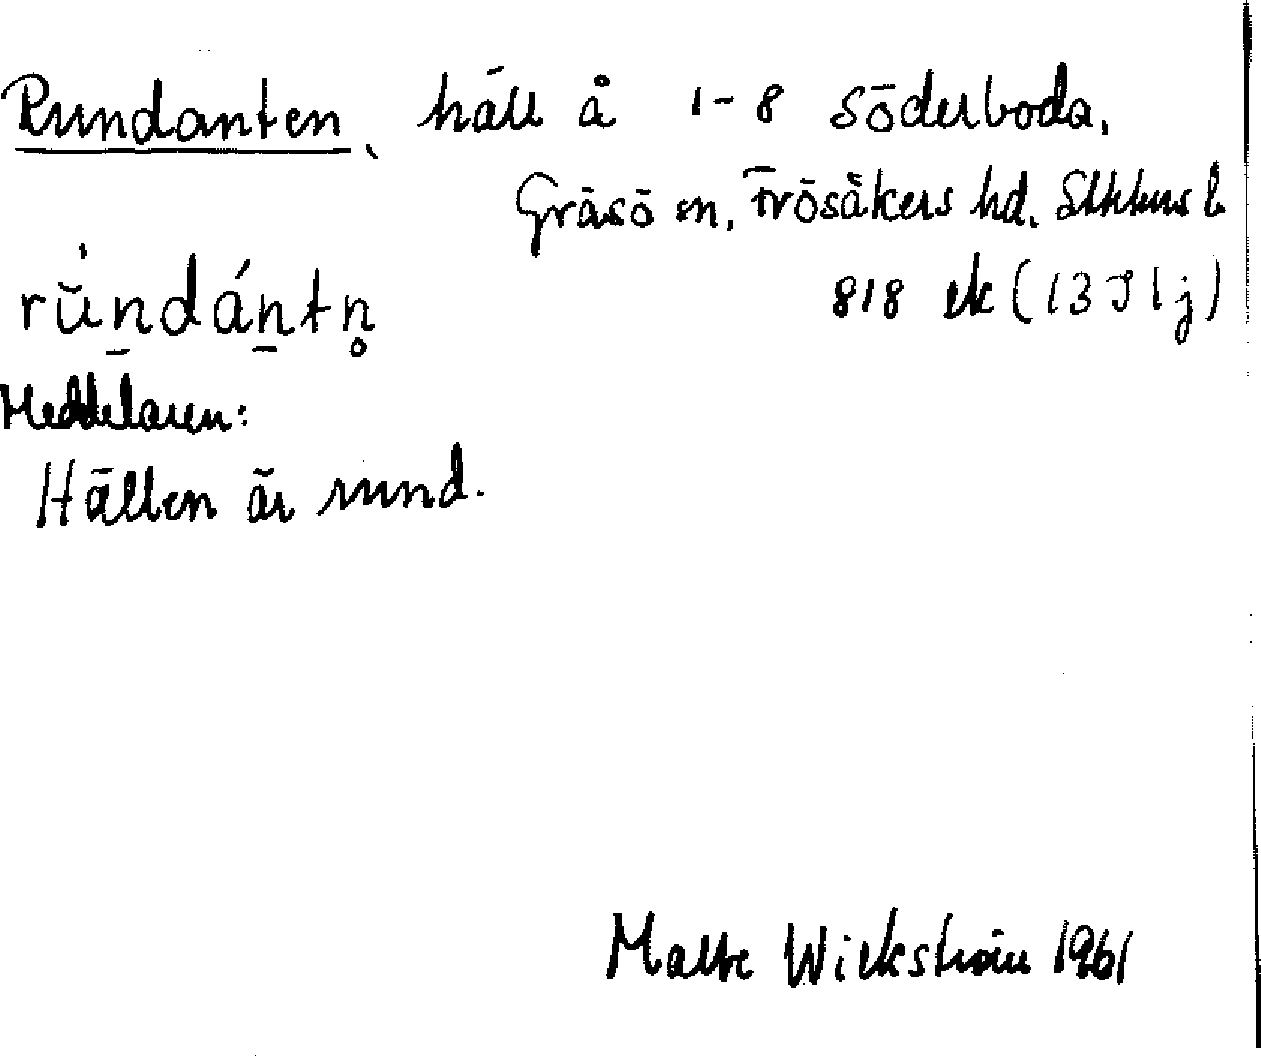 Rundanten, häll å 1-8 Söderboda,
Gräsö sn, Frösåkers hd, Sthlms l.
rŭ́ndántn̥ 818 ek (13 I 1 j)
Meddelaren:
Hällen är rund.
Malte Wickström 1961